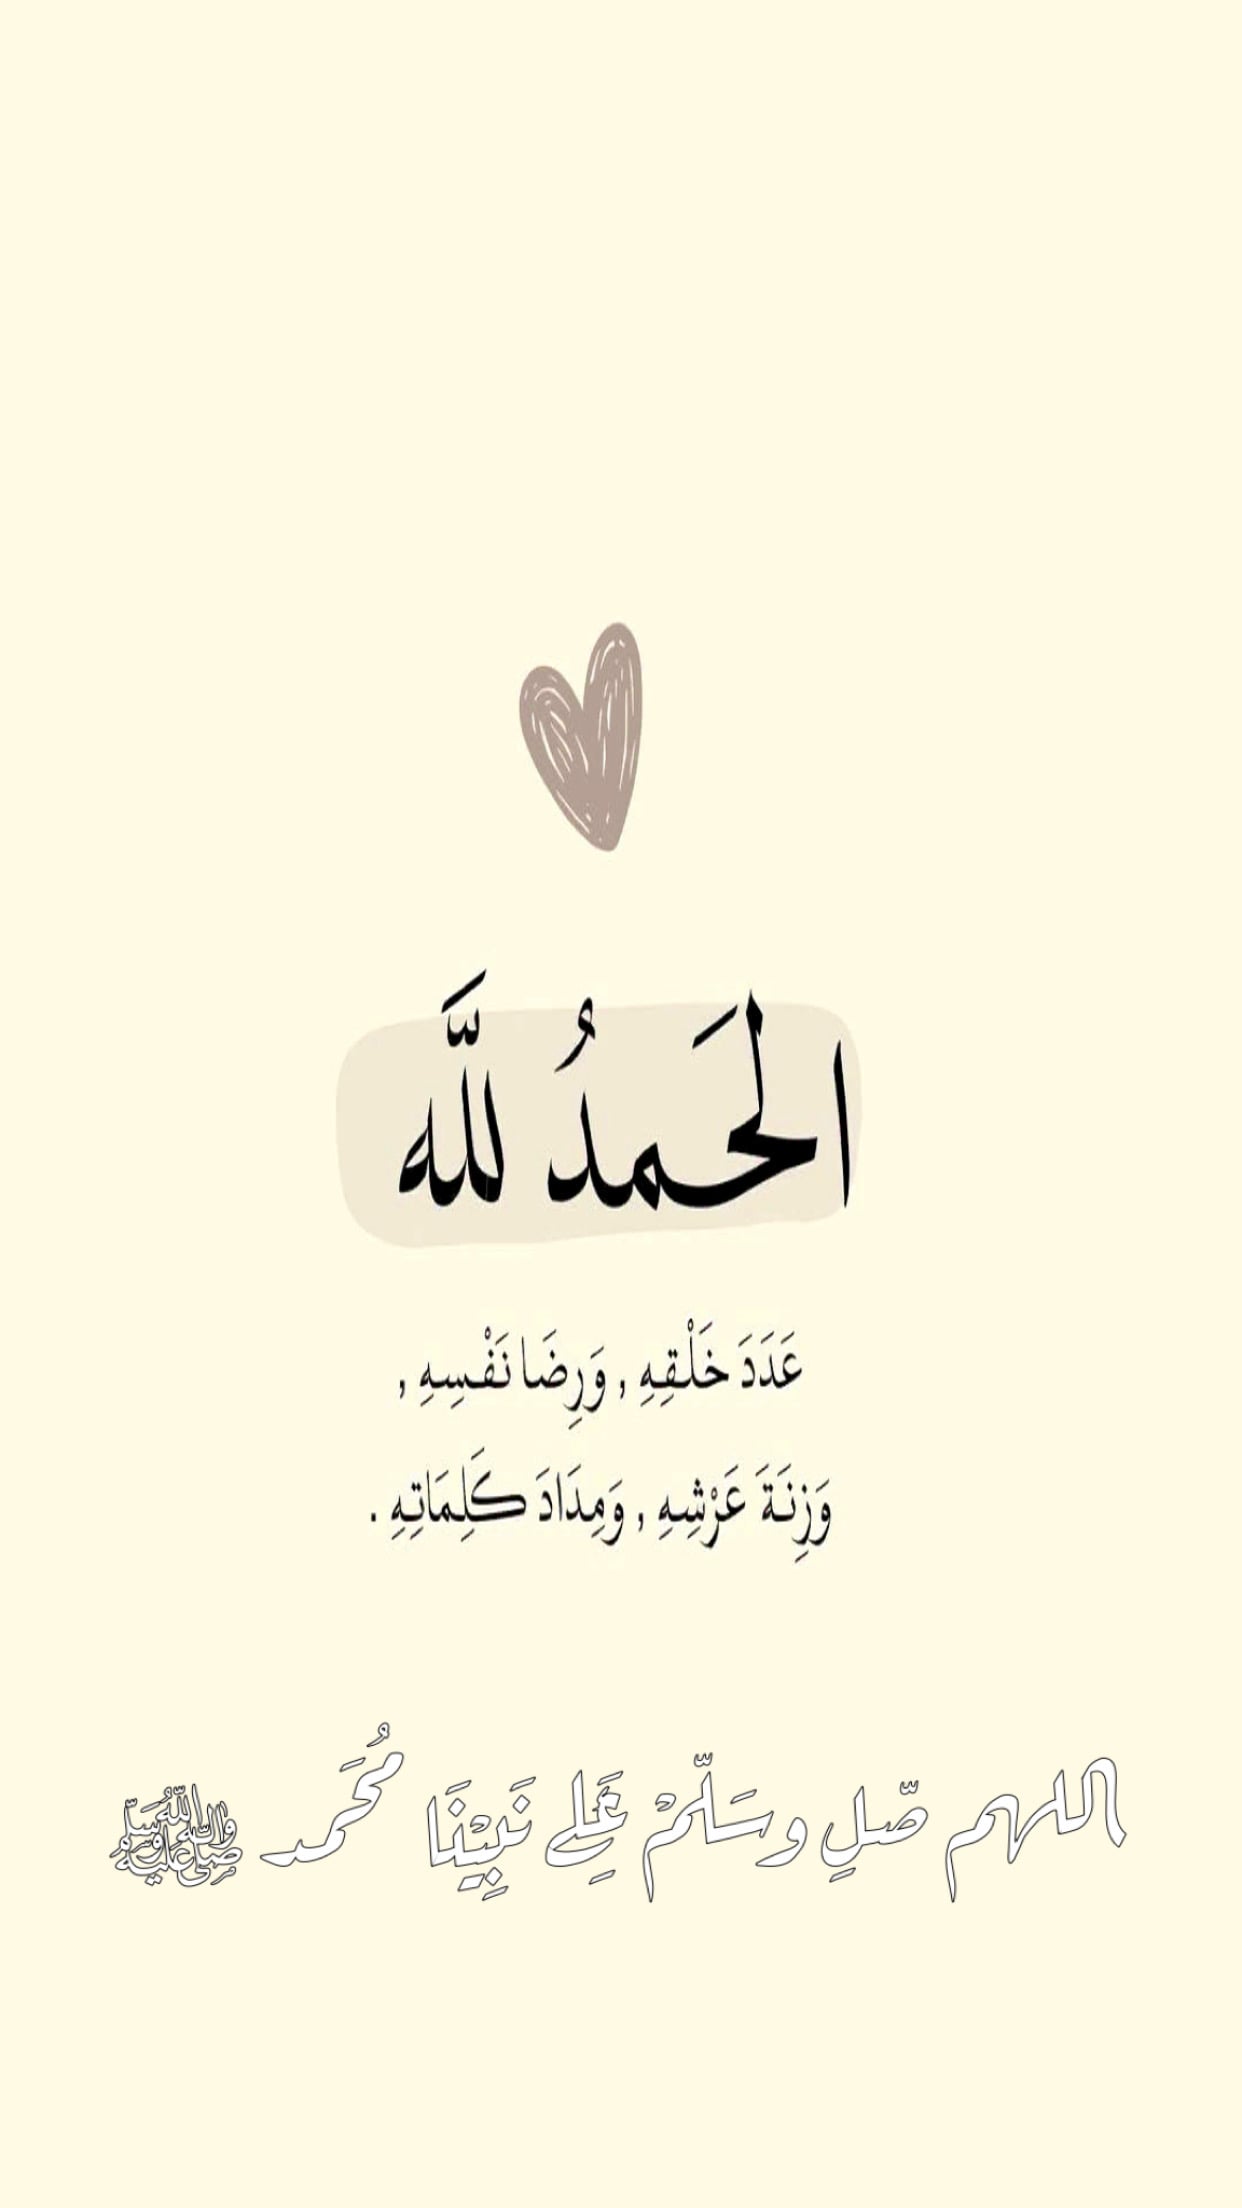 الحَمدُ للَّه
عَدَدَ خَلْقِهِ , وَرِضَا نَفْسِهِ ,
وَزِنَةَ عَرْشِهِ , وَمِدَادَ كَلِمَاتِهِ .
اللهم صّلِ وسَلّمْ عَلِے نَبِيْنَا مُحَمد ﷺ